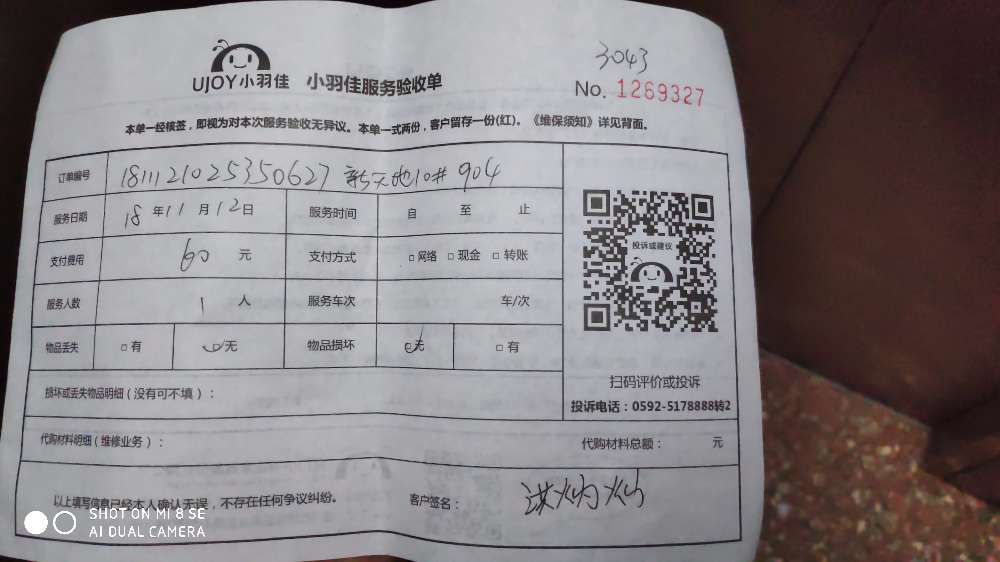 3043
UJOY小羽佳 小羽佳服务验收单
No. 1269327
本单一经核签，即视为对本次服务验收无异议。本单一式两份，客户留存一份(红)。《维保须知》详见背面。
订单编号 1811121025350627 新天地10# 904
服务日期 18年11月12日 服务时间 自 至 止
支付费用 60元 支付方式 □网络 □现金 □转账
服务人数 1人 服务车次 车/次
物品丢失 □有 □无 物品损坏 □无 □有
投诉或建议
扫码评价或投诉
投诉电话：0592-5178888转2
损坏或丢失物品明细（没有可不填）：
代购材料明细（维修业务）： 代购材料总额： 元
以上填写信息已经本人确认无误，不存在任何争议纠纷。 客户签名：
SHOT ON MI 8 SE
AI DUAL CAMERA